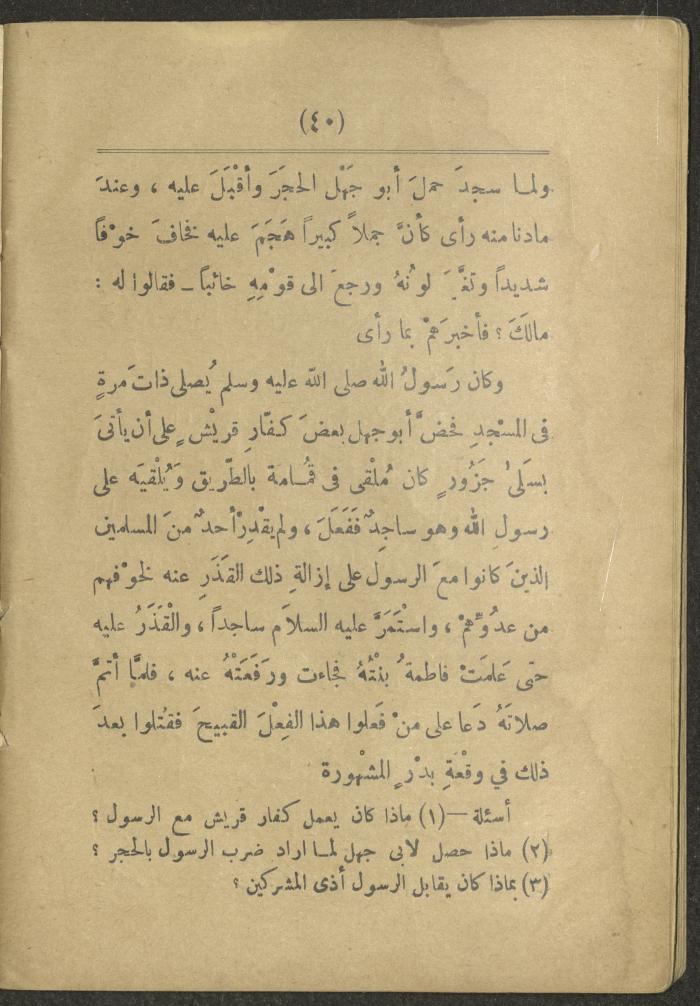 (٤٠)
ولما سجدَ حملَ أبو جَهْل الحجَرَ وأقْبَلَ عليه ، وعندَ
مادنا منه رأى كأنَّ جملاً كبيراً هَجَمَ عليه فخافَ خوْفاً
شديداً وتغَّيَرَ لوْنهُ ورجعَ الى قوْمِهِ خائباً ـ فقالوا له :
مالَكَ ؟ فأخبرَهمْ بما رأى
وكان رَسولُ الله صلى الله عليه وسلم يُصلى ذاتَ مَرةٍ
فى المسْجدِ فحضَّ أبوجهل بعضَ كفّارِ قريْشٍ على أن يأتىَ
بسَلىْ جَزُورٍ كان مُلْقى فى قُمامة بالطّريق وَيُلْقيَه على
رسولِ الله وهو ساجِدٌ فَفَعَلَ ، ولم يقْدِرْ أحدٌ منَ المسلمين
الذينَ كانوا معَ الرسول على إزالةِ ذلك القَذَرِ عنه لخوْفهم
من عدُوِّهمْ ، واسْتَمَرَّ عليه السلاَم ساجداً ، والْقَذَرُ عليه
حتى عَلمَتْ فاطمةُ بنْتُهُ فجاءت ورَفَعَتْهُ عنه ، فلمَّا أتمَّ
صلاتَهُ دَعا على منْ فَعلوا هذا الفِعْلَ القبيحَ فقُتلوا بعدَ
ذلك في وقْعَةِ بدْرٍ المشْهورة
أسئلة —(١) ماذا كان يعمل كفار قريش مع الرسول ؟
(٢) ماذا حصل لابى جهل لما اراد ضرب الرسول بالحجر ؟
(٣) بماذا كان يقابل الرسول أذى المشركين ؟